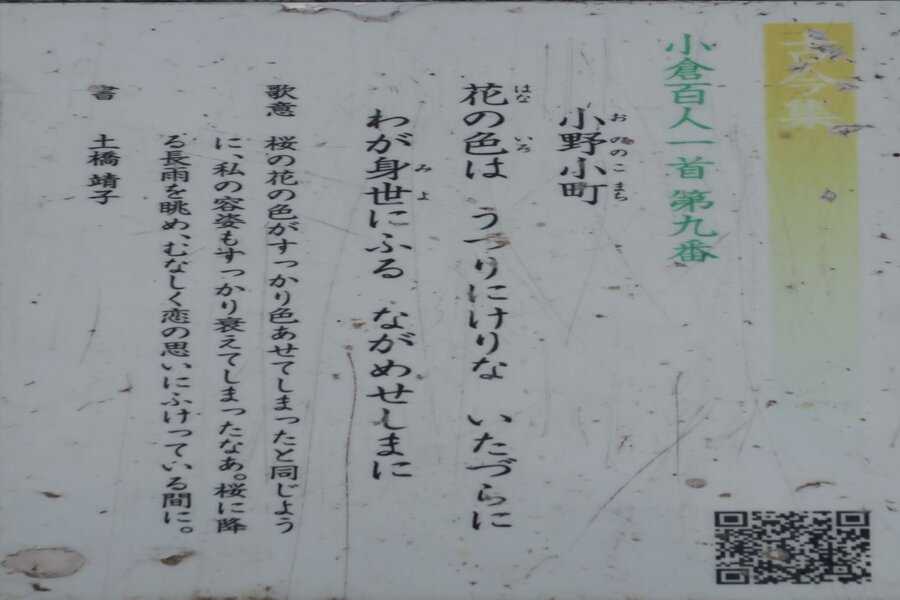 古今集
小倉百人一首 第九番
小野小町
おののこまち
花の色は うつりにけりな いたづらに
はな いろ
わが身世にふる ながめせしまに
みよ
歌意 桜の花の色がすっかり色あせてしまったと同じよう
に、私の容姿もすっかり衰えてしまったなあ。桜に降
る長雨を眺め、むなしく恋の思いにふけっている間に。
書 土橋靖子